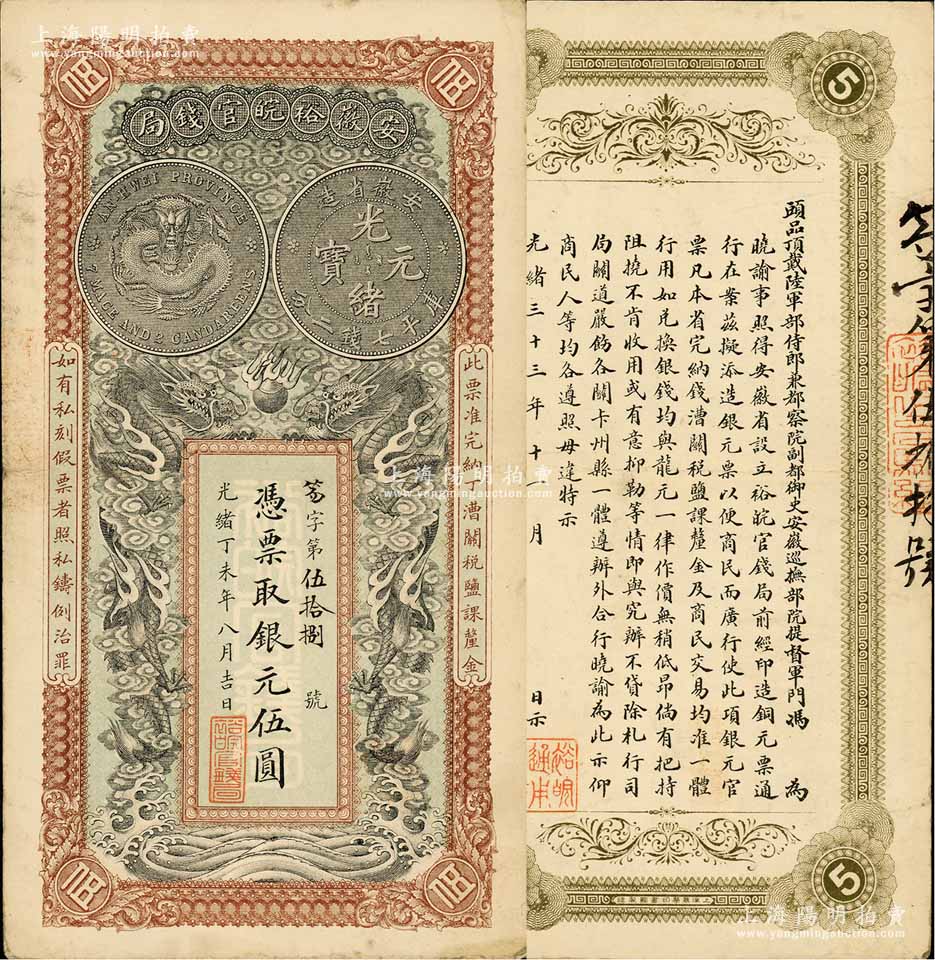 上海陽明拍賣
www.yangmingauction.com
伍
伍
安徽裕皖官錢局
AN-HWEI PROVINCE
7 MACE AND 2 CANDAREENS
安徽省造
光緒元寶
庫平七錢二分
此票准完納丁漕關稅鹽課釐金
如有私刻假票者照私鑄例治罪
字第伍拾捌號
憑票取銀元伍圓
光緒丁未年八月吉日
伍
伍
5
頭品頂戴陸軍部侍郎兼都察院副都御史安徽巡撫部院提督軍門馮 為
曉諭事照得安徽省設立裕皖官錢局前經印造銅元票通
行在案茲擬添造銀元票以便商民而廣行使此項銀元官
票凡本省完納錢漕關稅鹽課釐金及商民交易均准一體
行用如兌換銀錢均與龍元一律作價無稍低昂倘有把持
阻撓不肯收用或有意抑勒等情即與究辦不貸除札行司
局關道嚴飭各關卡州縣一體遵辦外合行曉諭為此示仰
商民人等均各遵照毋違特示
光緒三十三年十月 日示
裕皖通用
5
上海陽明拍賣
www.yangmingauction.com
上海陽明拍賣
www.yangmingauction.com